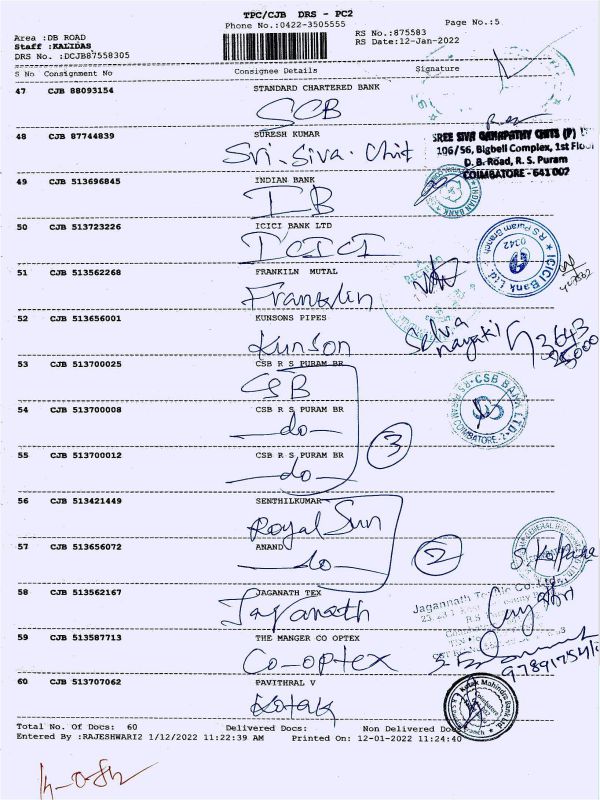 TPC/CJB DRS - PC2
Phone No.:0422-3505555
Page No.:5
Area :DB ROAD
RS No.:875583
Staff :KALIDAS
RS Date:12-Jan-2022
DRS No. :DCJB87558305
S No Consignment No Consignee Details Signature
47 CJB 88093154 STANDARD CHARTERED BANK
SCB
48 CJB 87744839 SURESH KUMAR
Sri-Siva-Chit
SREE SIVA GANAPATHY CHITS (P)
106/56, Bigbell Complex, 1st Floor
D. B. Road, R. S. Puram
COIMBATORE - 641 002
49 CJB 513696845 INDIAN BANK
IB
INDIAN BANK
50 CJB 513723226 ICICI BANK LTD
ICICI
ICICI Bank Ltd.
R S Puram Branch
0342
51 CJB 513562268 FRANKILN MUTAL
Franklin
52 CJB 513656001 KUNSONS PIPES
Kunson
Selva
nayaki
53 CJB 513700025 CSB R S PURAM BR
CSB
CSB BANK LTD
R S PURAM COIMBATORE-2
54 CJB 513700008 CSB R S PURAM BR
do
3
55 CJB 513700012 CSB R S PURAM BR
do
56 CJB 513421449 SENTHILKUMAR
Royal Sun
57 CJB 513656072 ANAND
do
2
58 CJB 513562167 JAGANATH TEX
Jaganath
Jagannath Textile Co. Ltd.
59 CJB 513587713 THE MANGER CO OPTEX
Co-optex
60 CJB 513707062 PAVITHRAL V
Kotak
Kotak Mahindra Bank Ltd.
Total No. Of Docs: 60 Delivered Docs: Non Delivered Docs:
Entered By :RAJESHWARI2 1/12/2022 11:22:39 AM Printed On: 12-01-2022 11:24:40